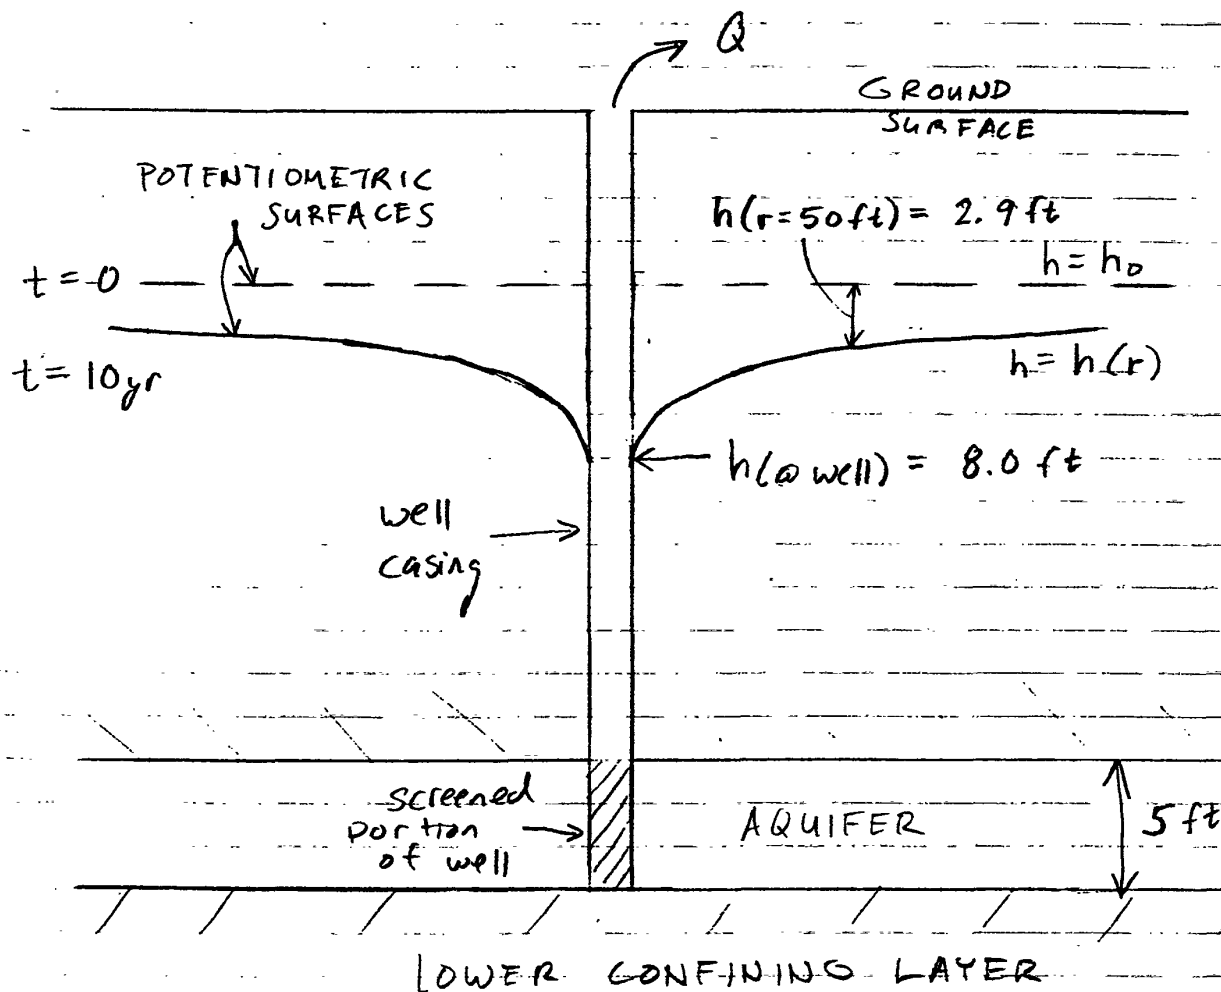 Q
GROUND
SURFACE
POTENTIOMETRIC
SURFACES
h(r=50ft) = 2.9ft
h=h₀
t=0
t=10yr
h=h(r)
h(@ well) = 8.0 ft
well
casing
screened
portion
of well
AQUIFER
5ft
LOWER CONFINING LAYER